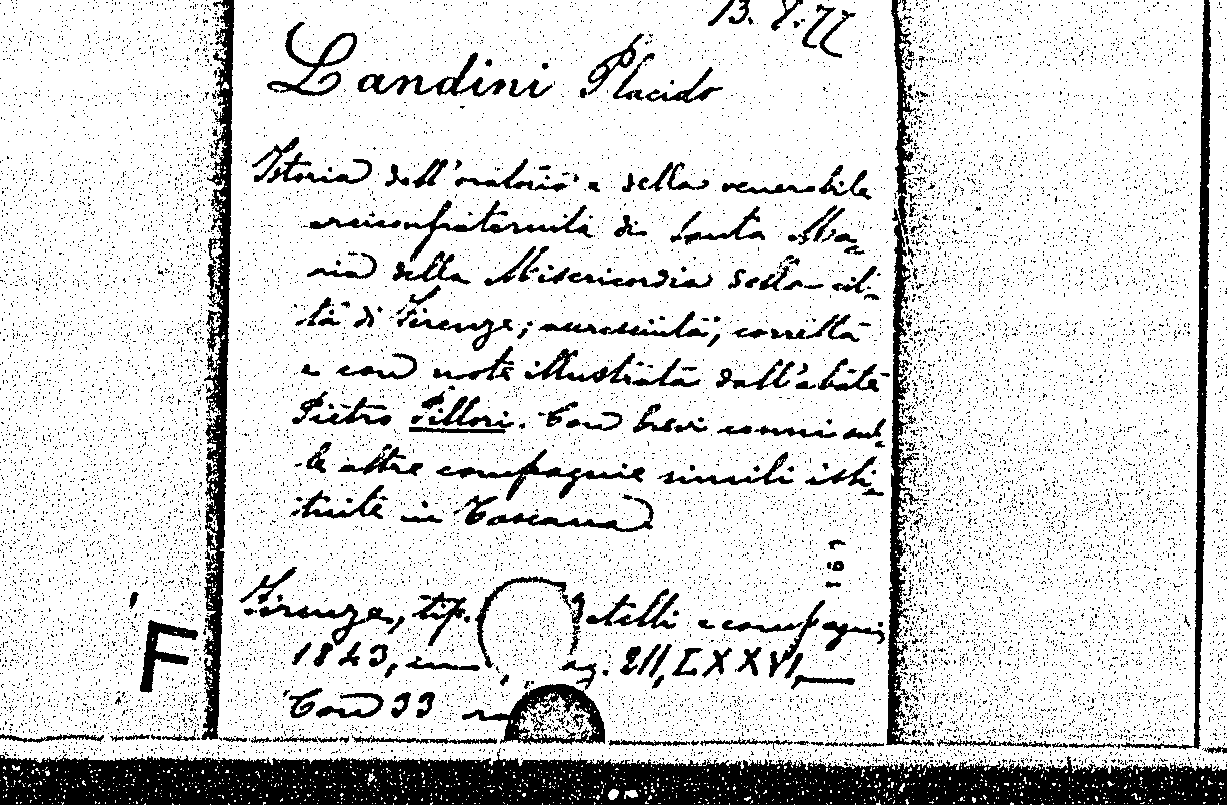 13. 7. 77
Landini Placido
Istoria dell'oratorio e della venerabile
arciconfraternita di Santa Ma-
ria della Misericordia della cit-
tà di Firenze; accresciuta, corretta
e con note illustrata dall'abate
Pietro Pillori. Con brevi cenni sul-
le altre compagnie simili isti-
tuite in Toscana
Firenze, tip. compagni,
1843, 211, LXXVI,
Con 33
F